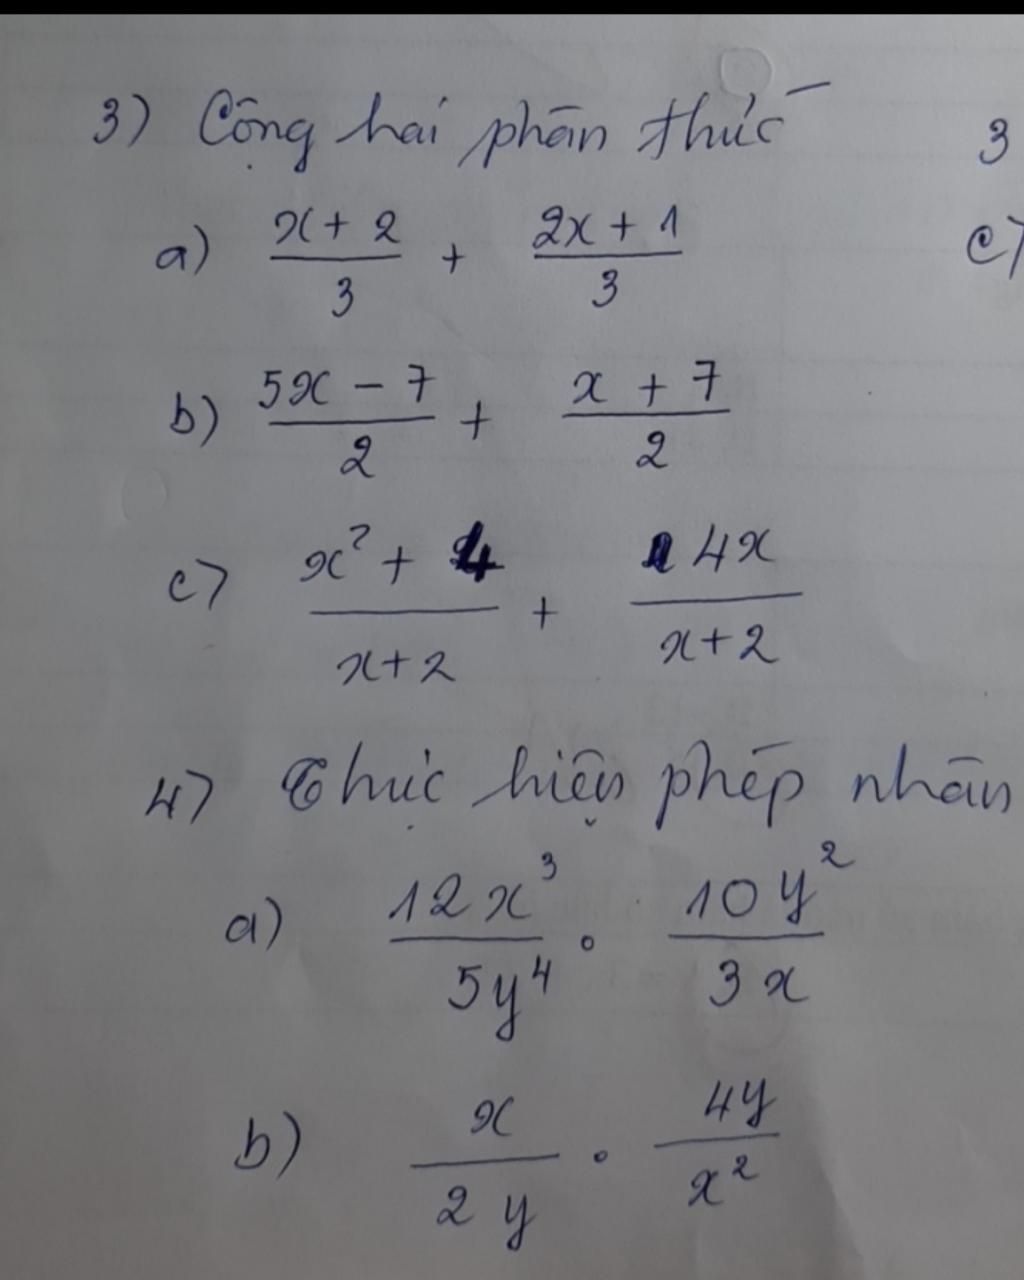 3) Cộng hai phân thức
a) (x + 2)/3 + (2x + 1)/3
b) (5x - 7)/2 + (x + 7)/2
c) (x² + 4)/(x + 2) + 4x/(x + 2)
4) Thực hiện phép nhân
a) 12x³/5y⁴ . 10y²/3x
b) x/2y . 4y/x²
3
c)